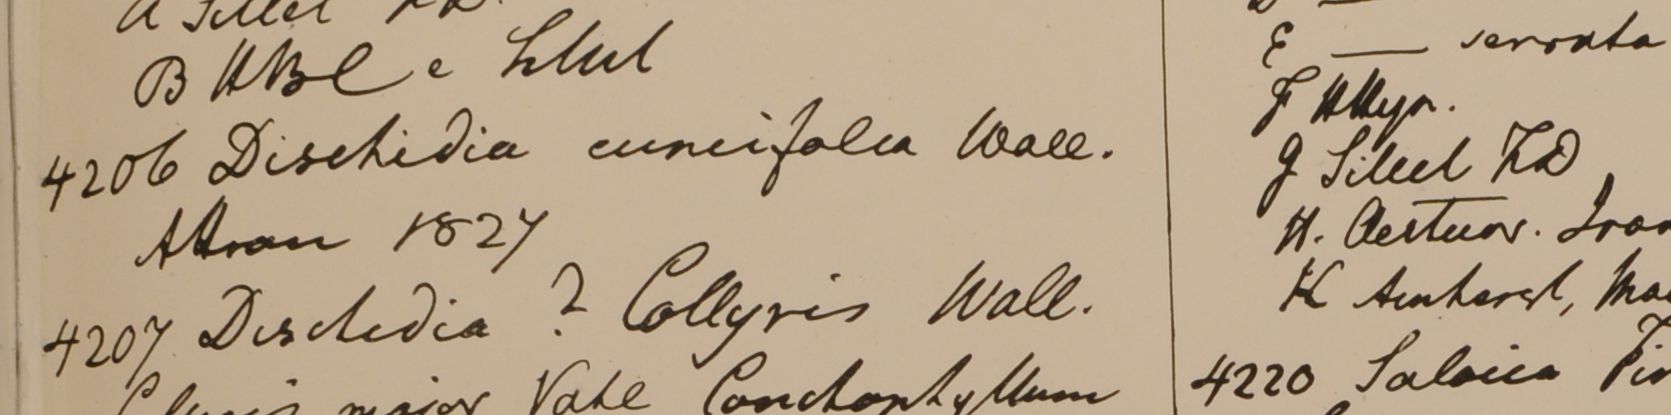 A Sillet
B HBC e
4206 Dischidia cuneifolia Wall.
Attran 1827
4207 Dischidia ? Collyris Wall.
major Vahl Conchophyllum
E — serrata
F HHyn.
G Sillet FD
H. Aestuar.
K Amherst,
4220 Salvia